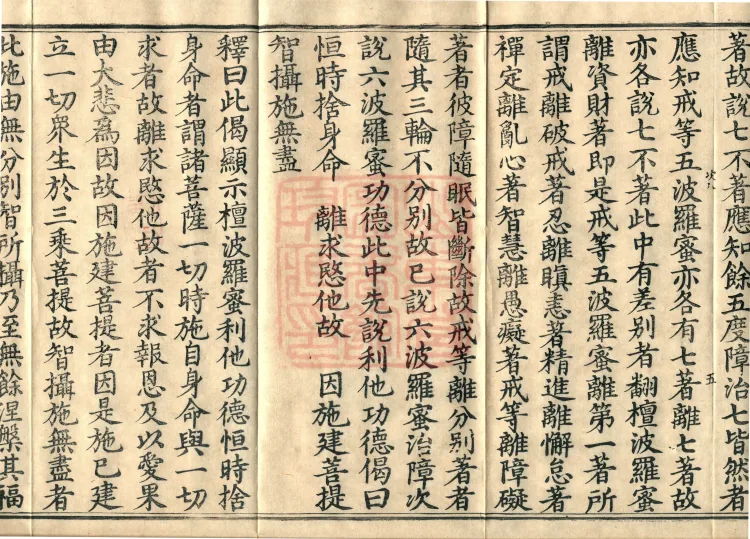 著故說七不著應知餘五度障治七皆然者
應知戒等五波羅蜜亦各有七著離七著故
亦各說七不著此中有差別者翻檀波羅蜜
離資財著即是戒等五波羅蜜離第一著所
謂戒離破戒著忍離瞋恚著精進離懈怠著
禪定離亂心著智慧離愚癡著戒等離障礙
著者彼障隨眠皆斷除故戒等離分別著者
隨其三輪不分別故已說六波羅蜜治障次
說六波羅蜜功德此中先說利他功德偈曰
恒時捨身命　離求愍他故　因施建菩提
智攝施無盡
釋曰此偈顯示檀波羅蜜利他功德恒時捨
身命者謂諸菩薩一切時施自身命與一切
求者故離求愍他故者不求報恩及以愛果
由大悲為因故因施建菩提者因是施已建
立一切眾生於三乘菩提故智攝施無盡者
此施由無分別智所攝乃至無餘涅槃其福